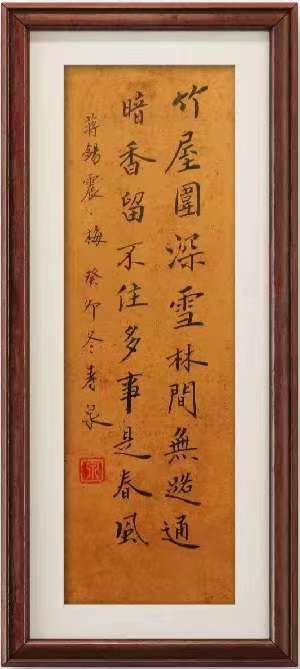 竹屋圍深雪林間無路通
暗香留不住多事是春風
蔣錫震·梅 癸卯冬 泉